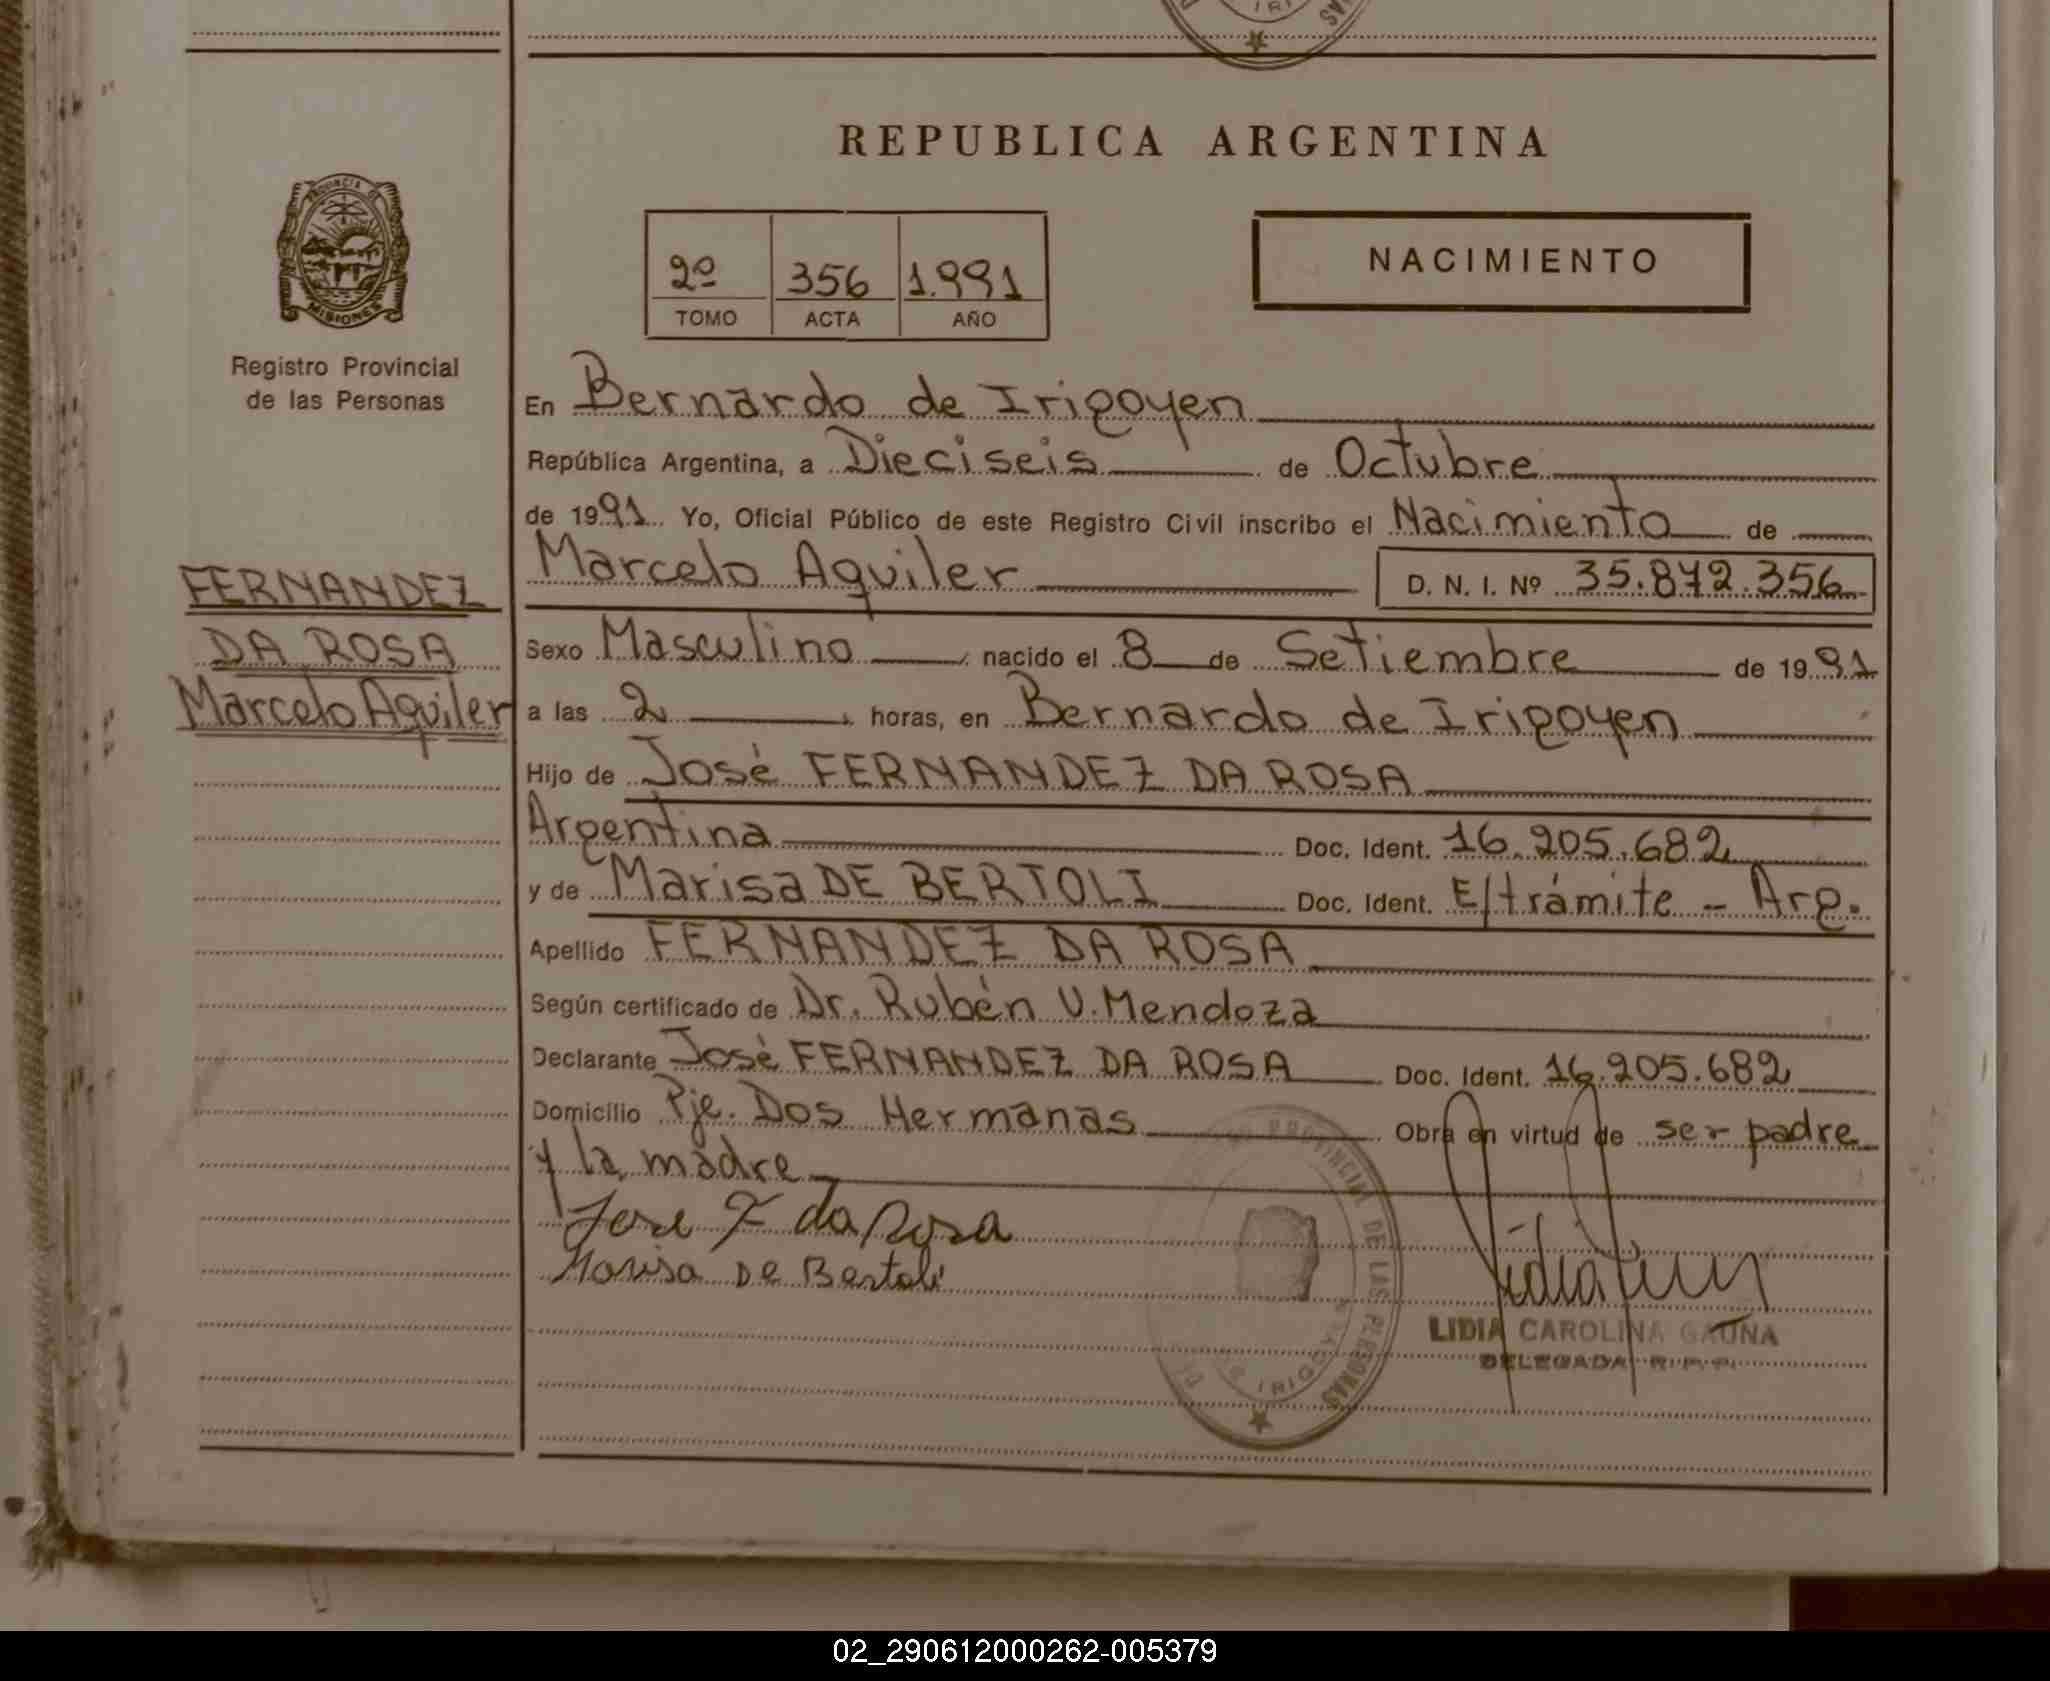 REPUBLICA ARGENTINA
PROVINCIA DE
MISIONES
Registro Provincial
de las Personas
2º 356 1.991
TOMO ACTA AÑO
NACIMIENTO
En Bernardo de Irigoyen
República Argentina, a Dieciseis de Octubre
de 1991 Yo, Oficial Público de este Registro Civil inscribo el Nacimiento de
Marcelo Aquiler D. N. I. Nº 35.872.356
FERNANDEZ
DA ROSA
Marcelo Aquiler
Sexo Masculino nacido el 8 de Setiembre de 1991
a las 2 horas, en Bernardo de Irigoyen
Hijo de José FERNANDEZ DA ROSA
Argentina Doc. Ident. 16.205.682
y de Marisa DE BERTOLI Doc. Ident. E/trámite - Arg.
Apellido FERNANDEZ DA ROSA
Según certificado de Dr. Rubén V. Mendoza
Declarante José FERNANDEZ DA ROSA Doc. Ident. 16.205.682
Domicilio Pje. Dos Hermanas Obra en virtud de ser padre
y la madre
Jose F da Rosa
Marisa De Bertoli
PROVINCIAL DE LAS PERSONAS
IRIGOYEN
LIDIA CAROLINA GAUNA
DELEGADA R. P. P.
02_290612000262-005379